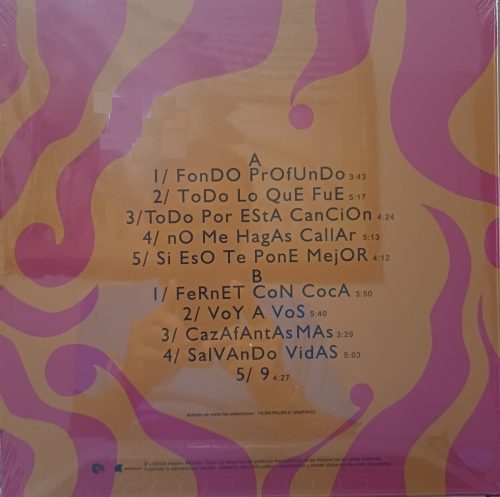 A
1/ FonDO PrOfUnDo 3:43
2/ ToDo Lo QuE FuE 5:17
3/ToDo Por EStA CanCIOn 4:24
4/ nO Me HagAs CalLAr 5:13
5/ Si EsO Te PonE MejOR 4:12
B
1/ FeRnET CoN CocA 3:50
2/ VoY A VoS 5:40
3/ CazAfAntAsMAs 3:29
4/ SalVAnDo VidAS 5:03
5/ 9 4:27